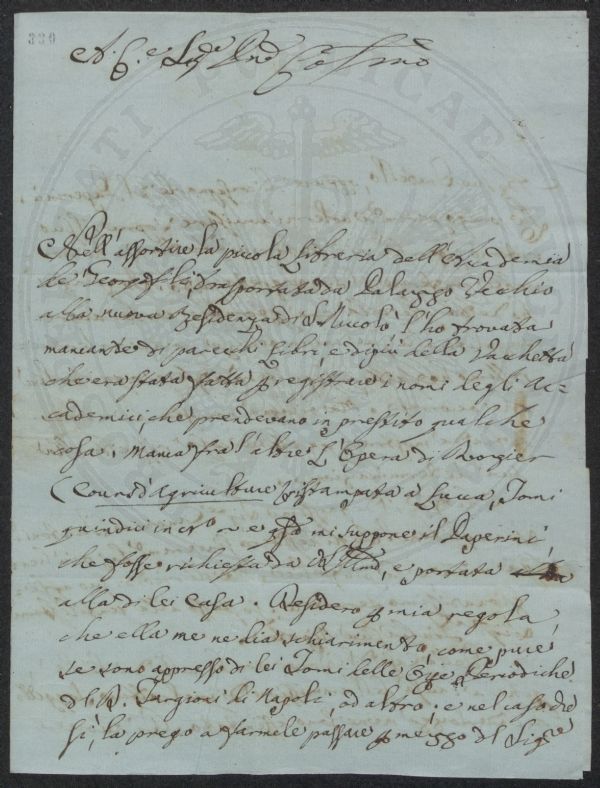 330
A. C. e Sig.e Pne Co Smo
Nell'assortire la picola libreria dell'Accademia
dei Georgofili, trasportata da Palazzo Vecchio
alla nuova Residenza di S. Niccolò l'ho trovata
mancante di parecchi libri, e di più della Vacchetta
che era stata fatta p registrare i nomi degli Ac-
cademici, che prendevano in prestito qualche
cosa. Manca fra l'altre l'Opera di Rozier
(Cours d'Agriculture ristampata a Lucca, Tomi
quindici in e mi suppone il Paperini,
che fosse richiesta da e portata
alla di lei Casa. Desidero p mia regola
che ella me ne dia schiarimento, come pure
se sono appresso di lei Tomi delle Periodiche
di Napoli, od altro; e nel caso di
si, la prego a farmele passare p mezzo del Sigre